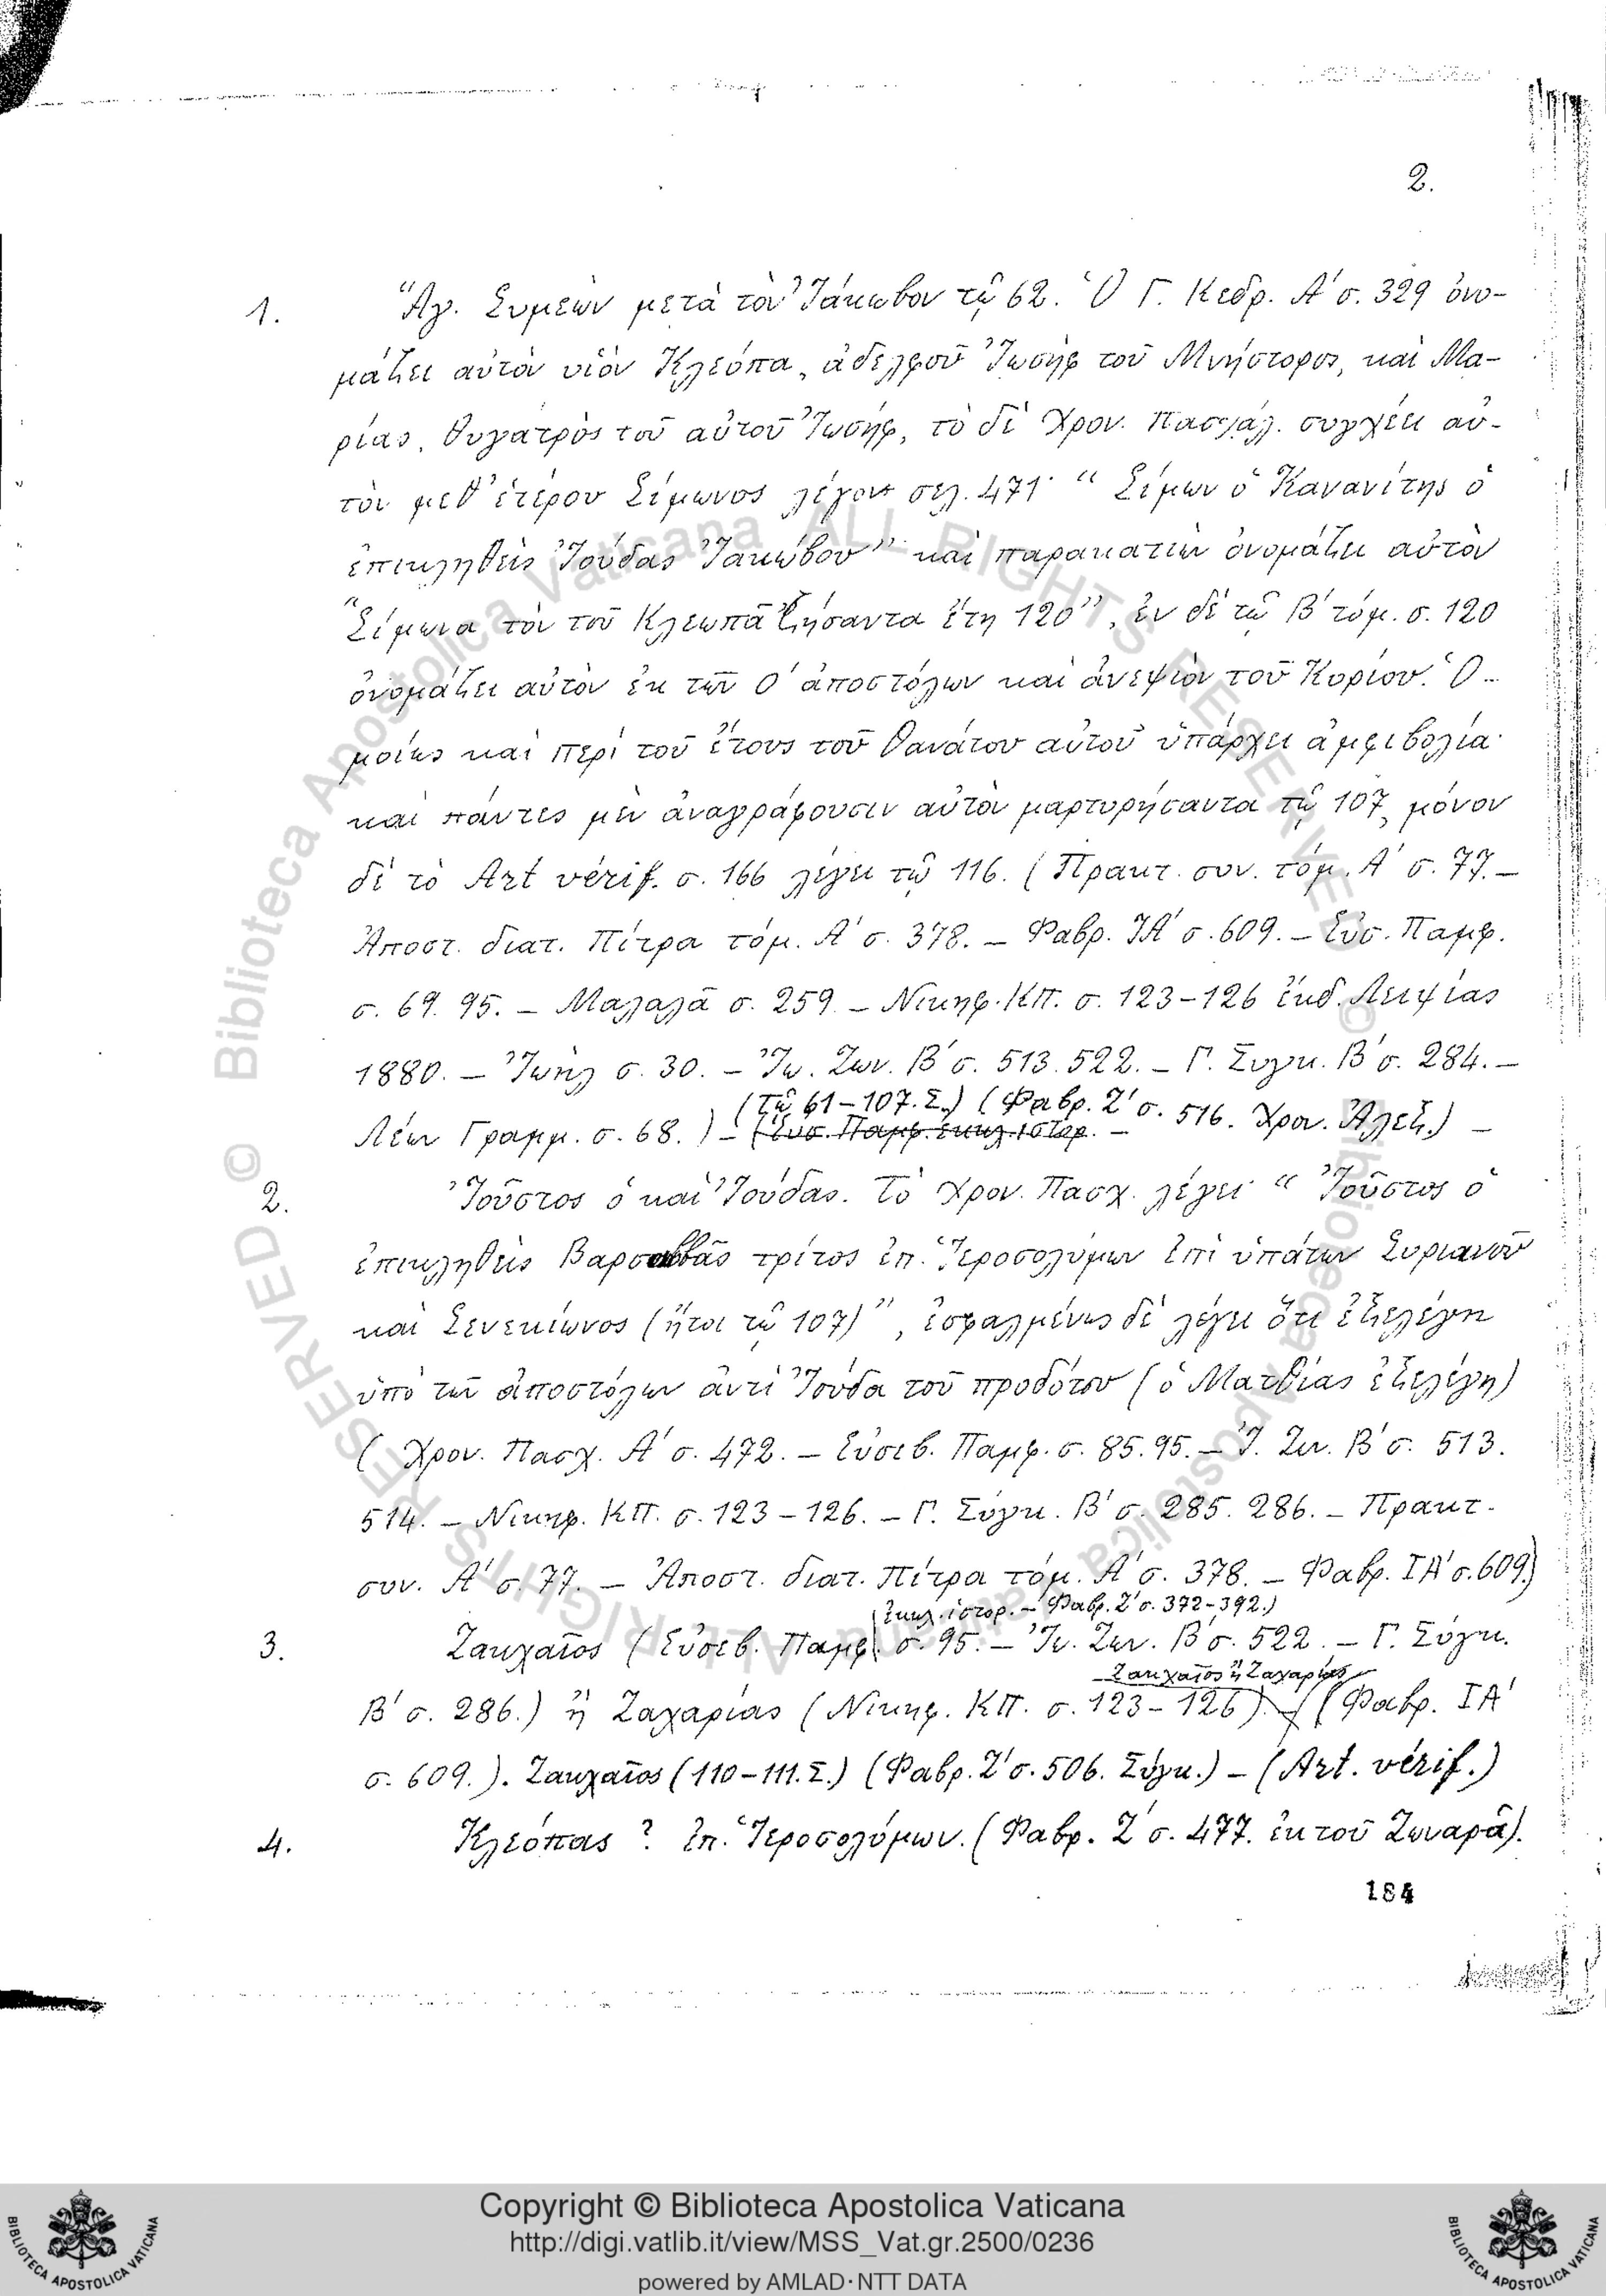 2.
1. Ἅγ. Συμεὼν μετὰ τὸν Ἰάκωβον τῷ 62. Ὁ Γ. Κεδρ. Α΄ σ. 329 ὀνο-
μάζει αὐτὸν υἱὸν Κλεόπα, ἀδελφοῦ Ἰωσὴφ τοῦ Μνήστορος, καὶ Μα-
ρίας, θυγατρὸς τοῦ αὐτοῦ Ἰωσήφ, τὸ δὲ Χρον. Πασχάλ. συγχέει αὐ-
τὸν μεθ' ἑτέρου Σίμωνος λέγον σελ. 471· “Σίμων ὁ Κανανίτης ὁ
ἐπικληθεὶς Ἰούδας Ἰακώβου” καὶ παρακατιὼν ὀνομάζει αὐτὸν
“Σίμωνα τὸν τοῦ Κλεωπᾶ ζήσαντα ἔτη 120”, ἐν δὲ τῷ Β΄ τόμ. σ. 120
ὀνομάζει αὐτὸν ἐκ τῶν Ο΄ ἀποστόλων καὶ ἀνεψιὸν τοῦ Κυρίου. Ὁ-
μοίως καὶ περὶ τοῦ ἔτους τοῦ θανάτου αὐτοῦ ὑπάρχει ἀμφιβολία·
καὶ πάντες μὲν ἀναγράφουσιν αὐτὸν μαρτυρήσαντα τῷ 107, μόνον
δὲ τὸ Art vérif. σ. 166 λέγει τῷ 116. (Πρακτ. συν. τόμ. Α΄ σ. 77. –
Ἀποστ. διατ. Πίτρα τόμ. Α΄ σ. 378. – Φαβρ. ΙΑ΄ σ. 609. – Εὐσ. Παμφ.
σ. 69. 95. – Μαλαλᾶ σ. 259 – Νικηφ. ΚΠ. σ. 123–126 ἔκδ. Λειψίας
1880. – Ἰωὴλ σ. 30. – Ἰω. Ζων. Β΄ σ. 513. 522. – Γ. Συγκ. Β΄ σ. 284. –
(τῷ 61–107. Σ.) (Φαβρ. Ζ΄ σ. 516. Χρον. Ἀλεξ.) –
Λέων Γραμμ. σ. 68.) – (Εὐσ. Παμφ. ἐκκλ. ἱστορ. –
2. Ἰοῦστος ὁ καὶ Ἰούδας. Τὸ Χρον. Πασχ. λέγει “Ἰοῦστος ὁ
ἐπικληθεὶς Βαρσαββᾶς τρίτος ἐπ. Ἱεροσολύμων ἐπὶ ὑπάτων Συριανοῦ
καὶ Σενεκίωνος (ἤτοι τῷ 107)”, ἐσφαλμένως δὲ λέγει ὅτι ἐξελέγη
ὑπὸ τῶν ἀποστόλων ἀντὶ Ἰούδα τοῦ προδότου (ὁ Ματθίας ἐξελέγη)
(Χρον. Πασχ. Α΄ σ. 472. – Εὐσεβ. Παμφ. σ. 85. 95. – Ἰ. Ζων. Β΄ σ. 513.
514. – Νικηφ. ΚΠ. σ. 123–126. – Γ. Σύγκ. Β΄ σ. 285. 286. – Πρακτ.
συν. Α΄ σ. 77. – Ἀποστ. διατ. Πίτρα τόμ. Α΄ σ. 378. – Φαβρ. ΙΑ΄ σ. 609.)
(ἐκκλ. ἱστορ. – Φαβρ. Ζ΄ σ. 372–392.)
3. Ζακχαῖος (Εὐσεβ. Παμφ. σ. 95. – Ἰω. Ζων. Β΄ σ. 522. – Γ. Σύγκ.
– Ζακχαῖος ἢ Ζαχαρίας
Β΄ σ. 286.) ἢ Ζαχαρίας (Νικηφ. ΚΠ. σ. 123–126). – (Φαβρ. ΙΑ΄
σ. 609.). Ζακχαῖος (110–111. Σ.) (Φαβρ. Ζ΄ σ. 506. Σύγκ.) – (Art. vérif.)
4. Κλεόπας ? ἐπ. Ἱεροσολύμων. (Φαβρ. Ζ΄ σ. 477. ἐκ τοῦ Ζωναρᾶ).
184
© Biblioteca Apostolica Vaticana ALL RIGHTS RESERVED © Biblioteca Apostolica Vaticana ALL RIGHTS RESERVED
Copyright © Biblioteca Apostolica Vaticana
http://digi.vatlib.it/view/MSS_Vat.gr.2500/0236
powered by AMLAD·NTT DATA
BIBLIOTECA APOSTOLICA VATICANA
BIBLIOTECA APOSTOLICA VATICANA